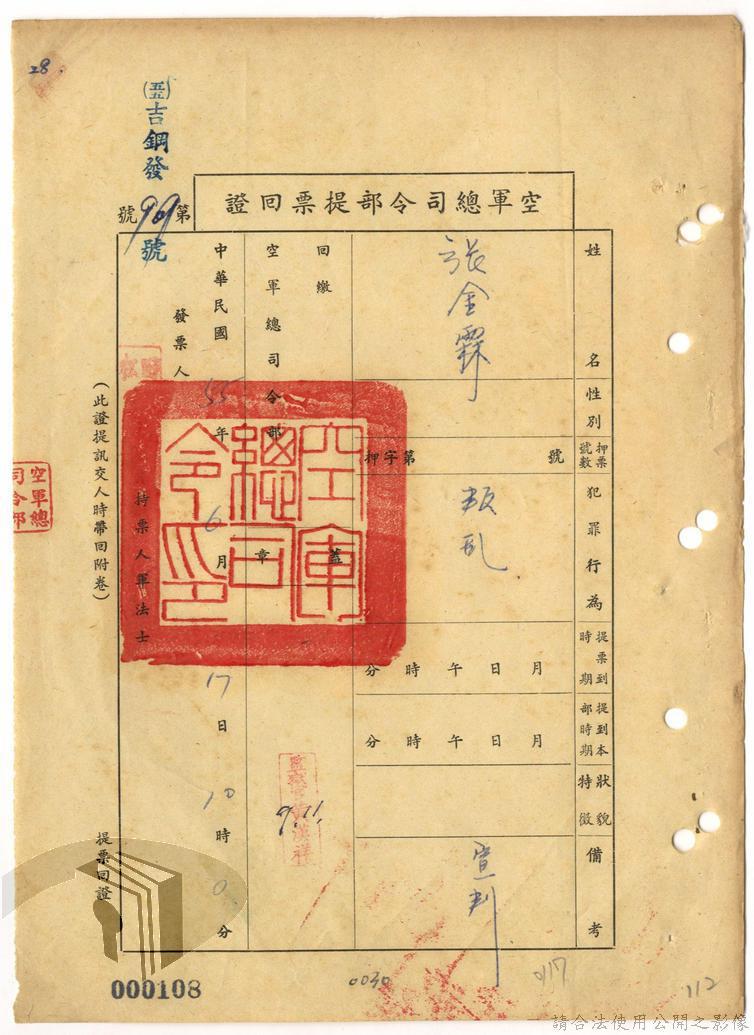 28.
(五五)吉鋼發
第909號
號
空軍總司令部提票回證
姓名
張金霖
性別
押票號數
押字第 號
犯罪行為
叛乱
提票到時期
月 日 午 時 分
提到本部時期
月 日 午 時 分
狀貌特徵
備考
宣判
回繳
空軍總司令部
蓋章
中華民國55年6月17日10時0分
發票人
持票人軍法士
(此證提訊交人時帶回附卷)
提票回證
空軍總司令印
空軍總司令部
000108
0030
0117
112
請合法使用公開之影像